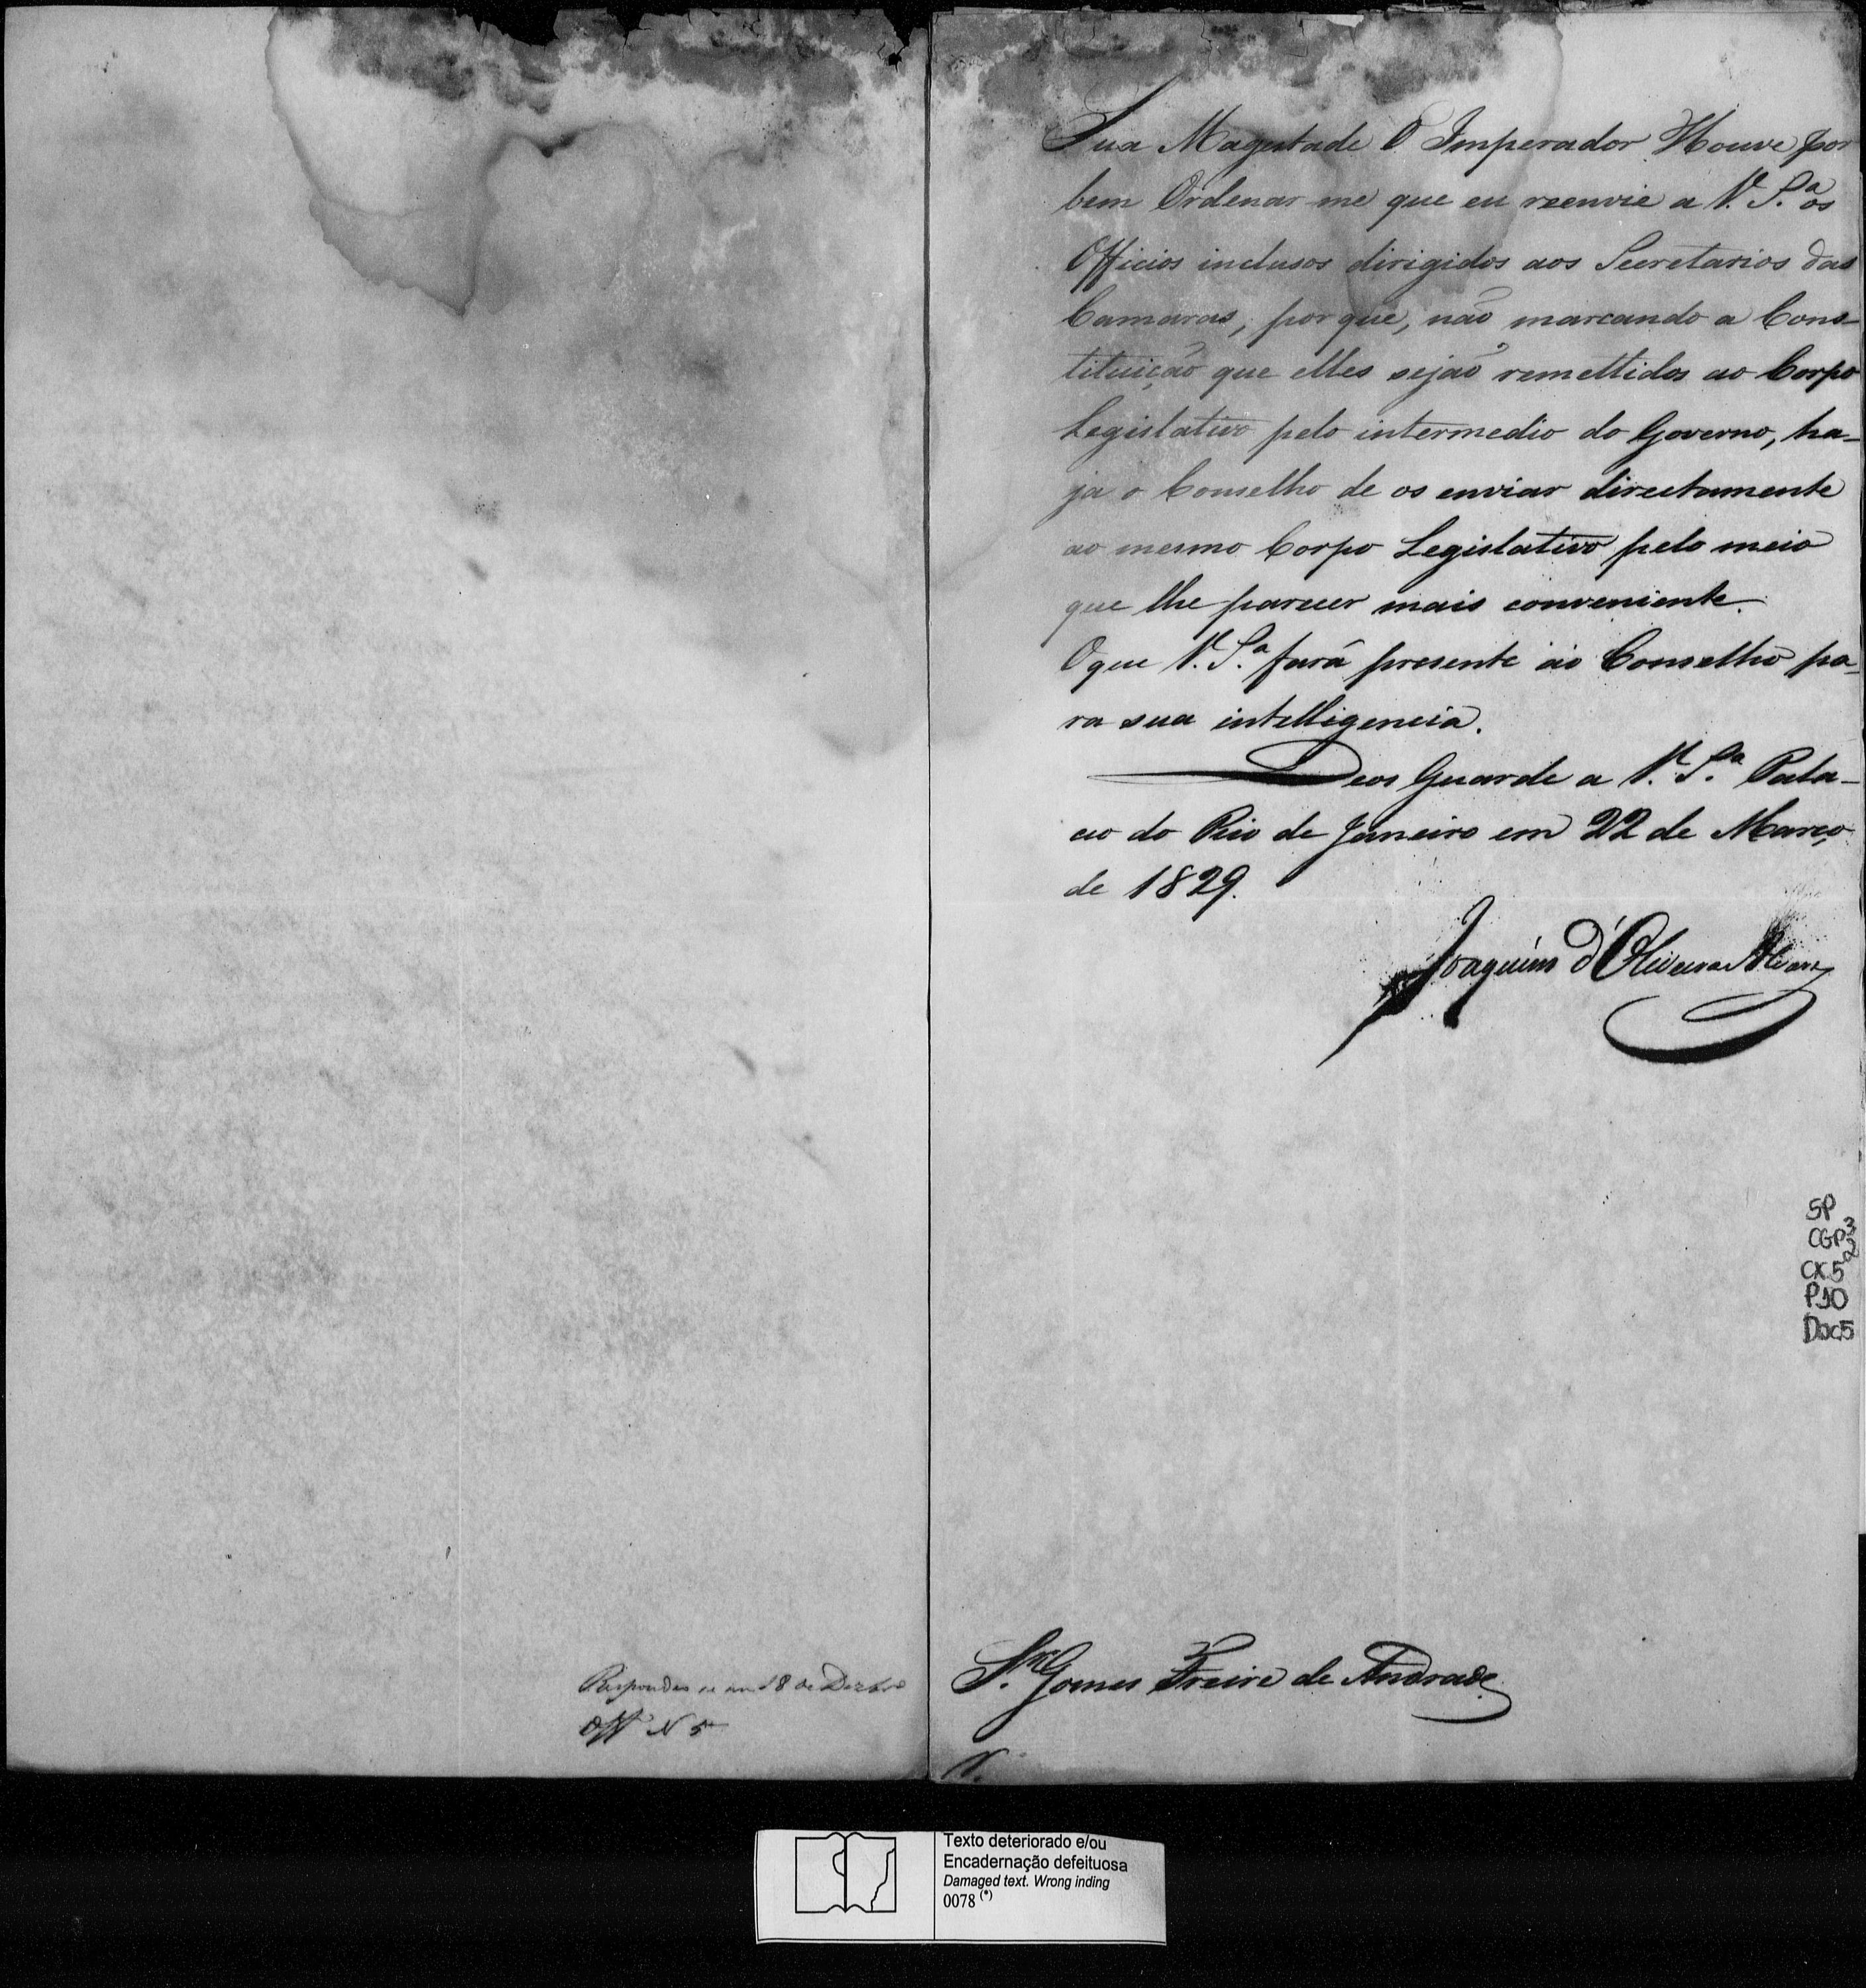 Respondeu se em 18 de Dezbro
Off N 5
Sua Magestade O Imperador Houve por
bem Ordenar me que eu reenvie a V. S.ª os
Officios inclusos dirigidos aos Secretarios das
Camaras, porque, não marcando a Cons-
tituição que elles sejão remettidos ao Corpo
Legislativo pelo intermedio do Governo, ha-
ja o Conselho de os enviar directamente
ao mesmo Corpo Legislativo pelo meio
que lhe parecer mais conveniente.
O que V. S.ª fará presente ao Conselho pa-
ra sua intelligencia.
Deos Guarde a V. S.ª Pala-
cio do Rio de Janeiro em 22 de Março
de 1829.
Joaquim d'Oliveira Alvares
SP
CGP3
2
CX.5
P10
Doc5
Sr. Gomes Freire de Andrade
N.
Texto deteriorado e/ou
Encadernação defeituosa
Damaged text. Wrong inding
0078 (*)